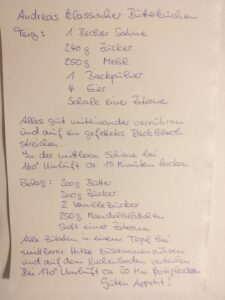 Andreas klassischer Bütterküchen
Teig: 1 Becher Sahne
240g Zücker
250g Mehl
1 Backpülver
4 Eier
Schale einer Zitrone
Alles güt miteinander verrühren
und auf ein gefettetes Backblech
streichen.
In der mittleren Schiene bei
160° Umlüft ca. 15 Minüten backen.
Belag: 200g Bütter
200g Zücker
2 Vanillezücker
250g Mandelblättchen
Saft einer Zitrone
Alle Zütaten in einem Topf bei
mittlerer Hitze züsammenrühren
und auf dem Küchenboden verteilen.
Bei 170° Umlüft ca 20 Min. fertigbacken
Güten Appetit!